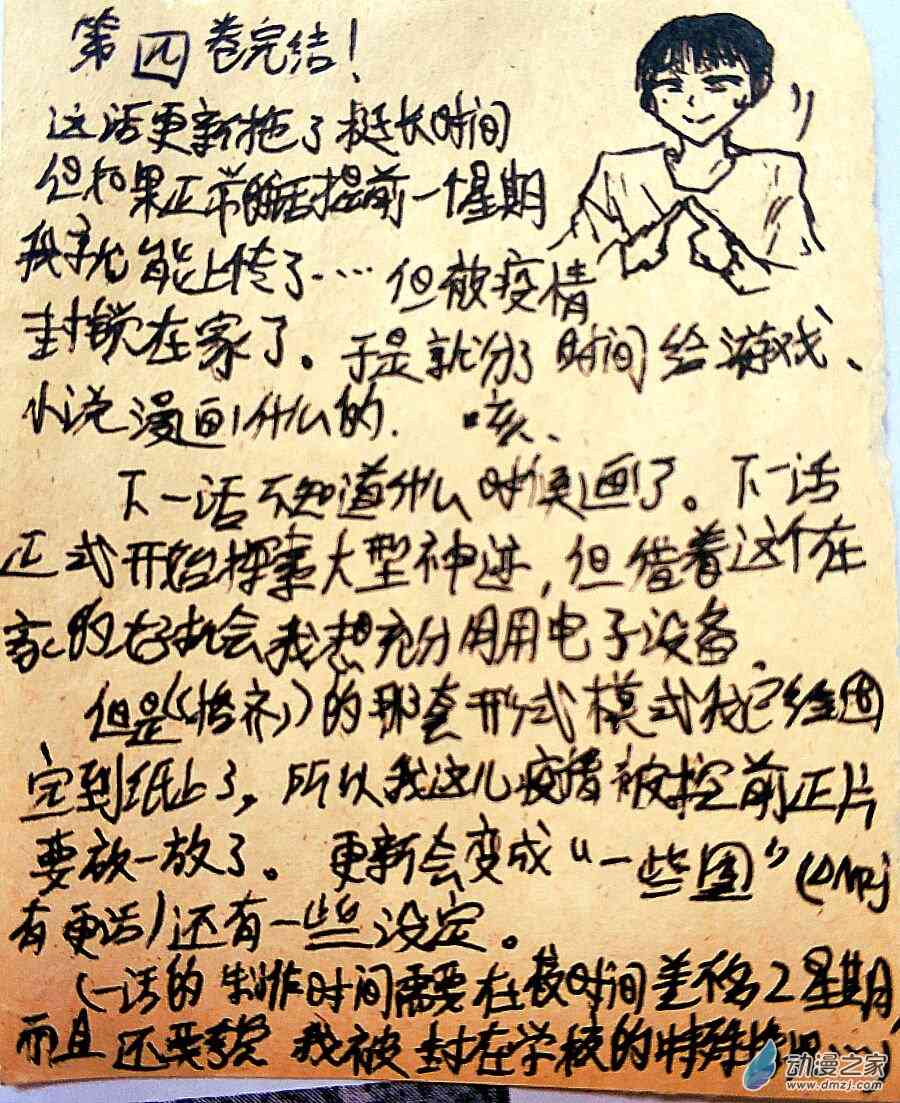 第四卷完结！
这话更新拖了挺长时间
但如果正常的话提前一个星期
我就能上传了……但被疫情
封锁在家了。于是就分了时间给游戏、
小说漫画什么的. 咳、
下一话不知道什么时候画了。下一话
正式开始探索大型神迹，但借着这个在
家的好机会我想充分用用电子设备.
但是《悟齐》的那套形式模式我已经固
定到纸上了，所以我这儿疫情被控前正片
要放一放了。更新会变成“一些图”(DMZJ
有更话)还有一些设定。
(一话的制作时间需要在校时间差不多2星期，
而且还要考虑我被封在学校的特殊情况……)
动漫之家
www.dmzj.com